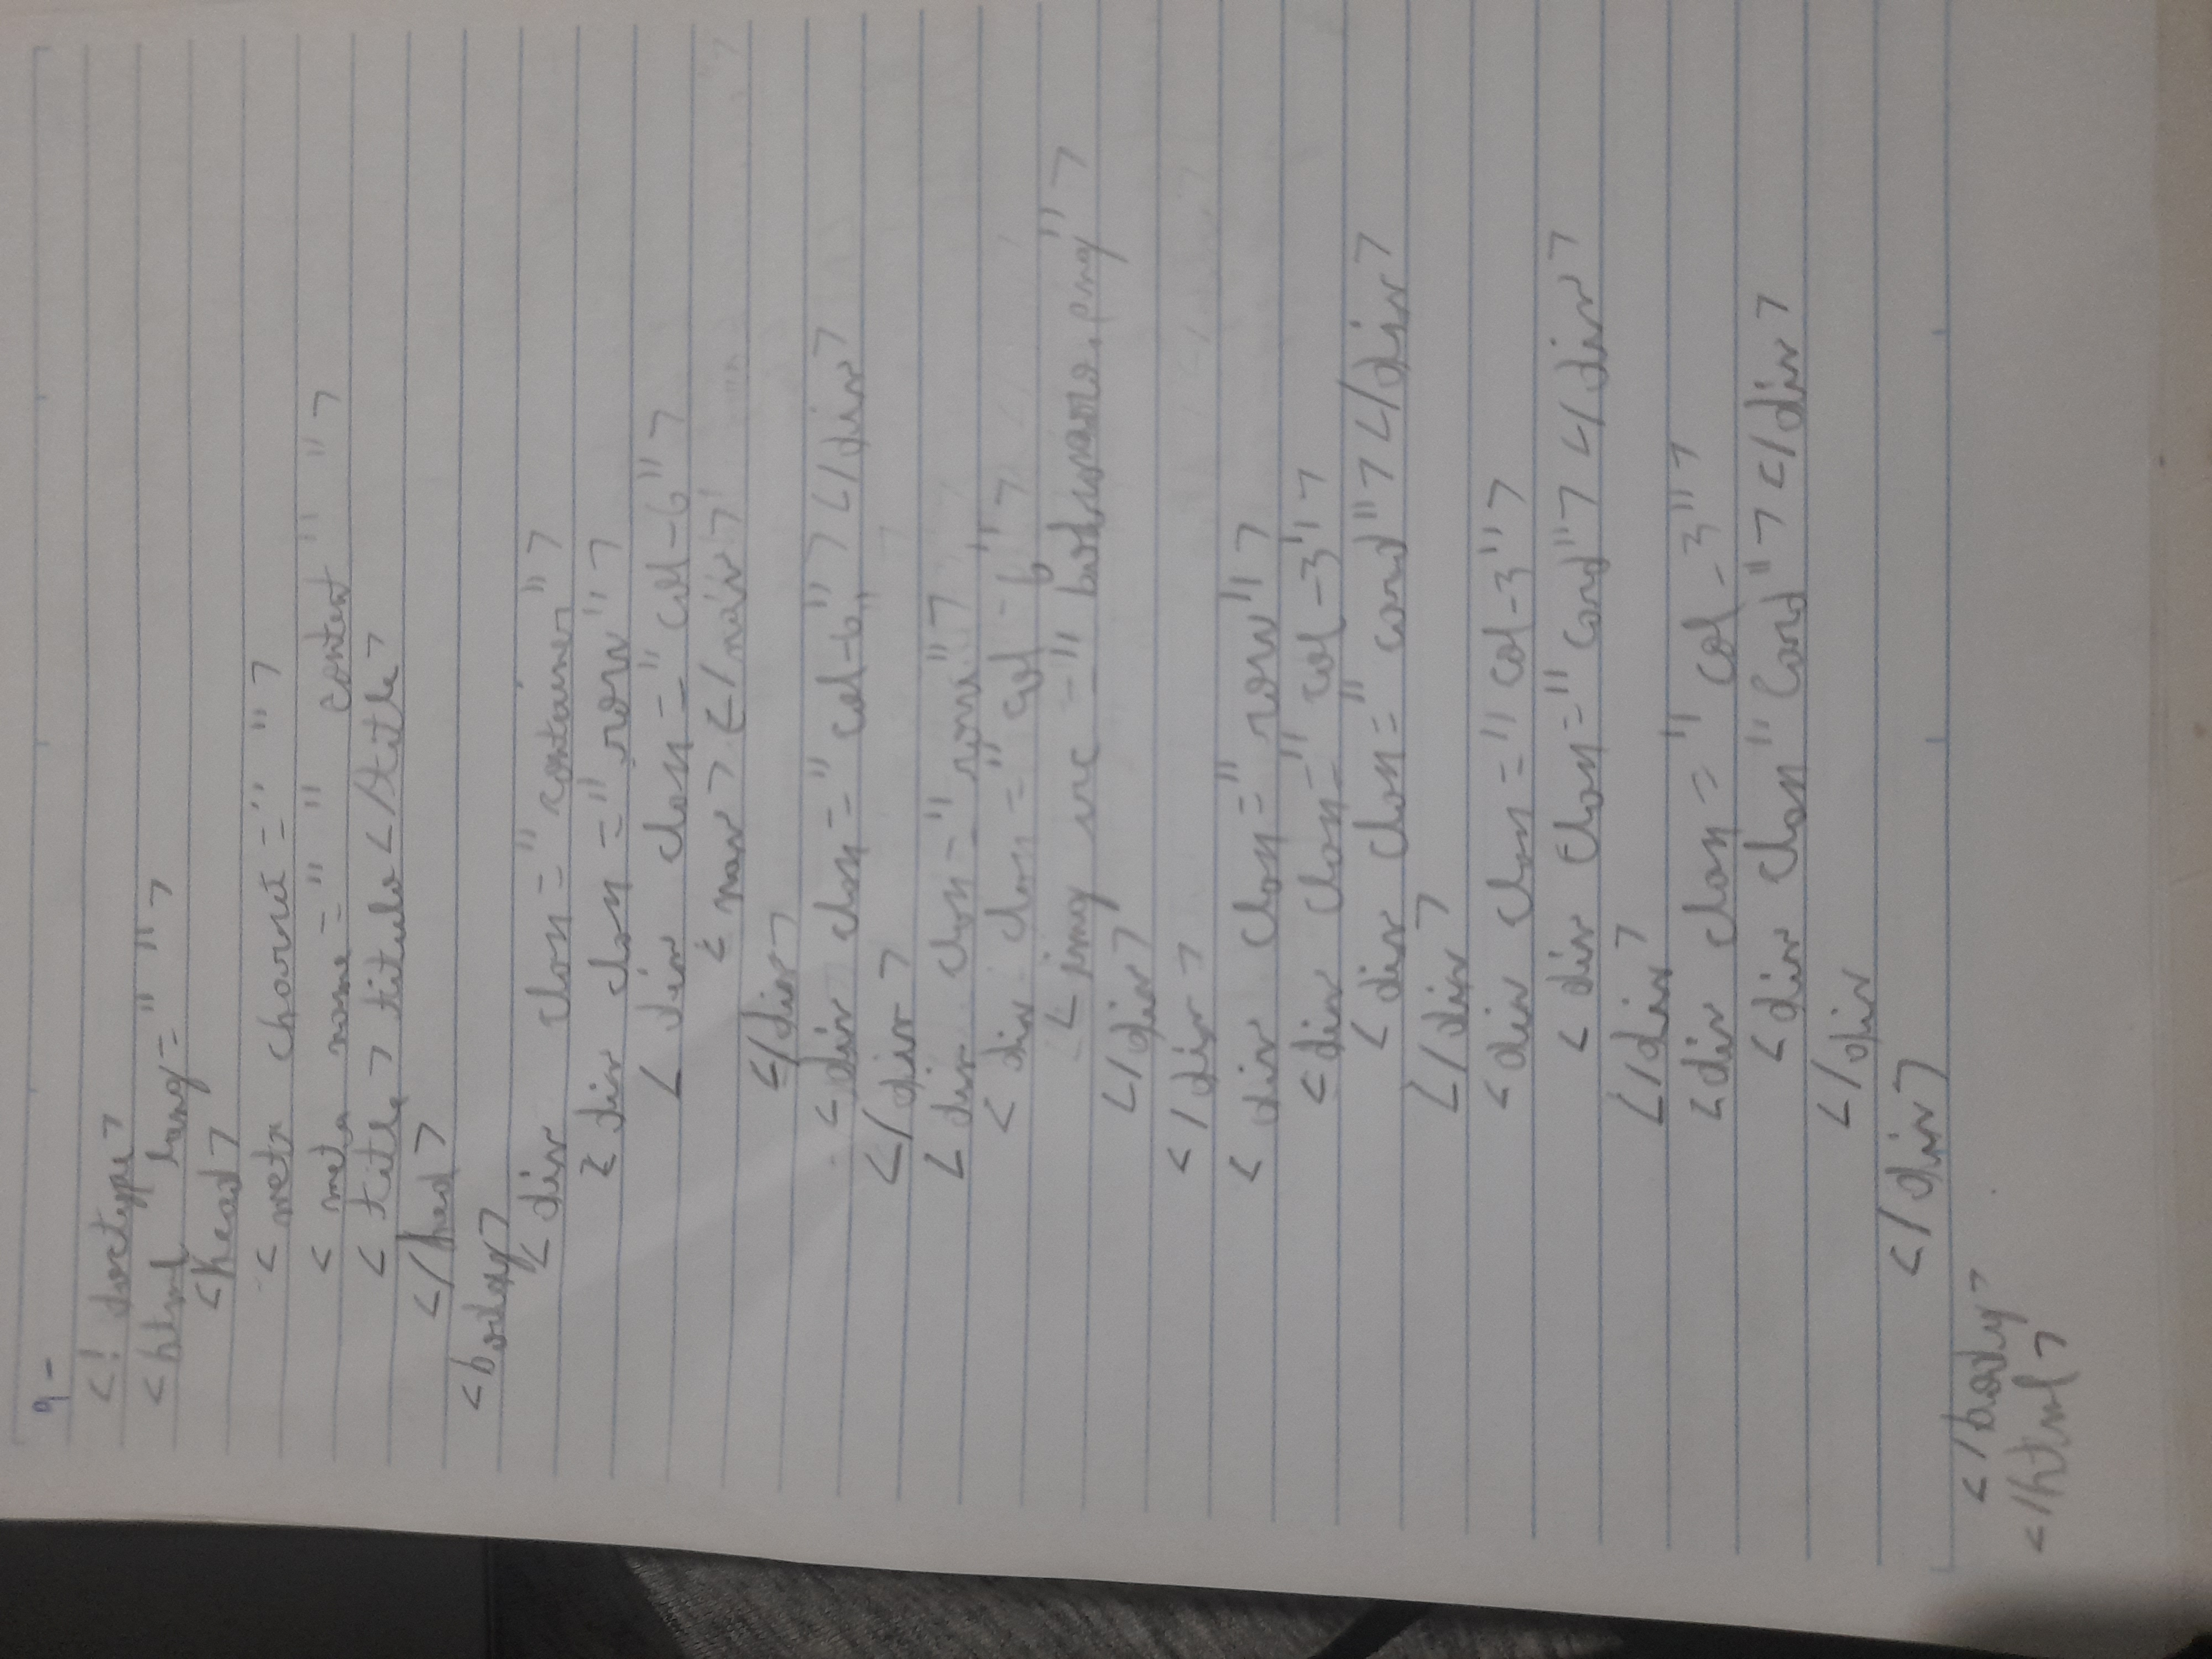 9-
<! doctype>
<html lang=" ">
<head>
<meta charset=" ">
<meta name=" " content " ">
<title> titulo </title>
</head>
<body>
<div class="container">
<div class="row">
<div class="col-6">
<nav> </nav>
</div>
<div class="col-6"> </div>
</div>
<div class="row">
<div class="col-6">
<img src=" .png">
</div>
</div>
<div class="row">
<div class="col-3">
<div class="card"> </div>
</div>
<div class="col-3">
<div class="card"> </div>
</div>
<div class="col-3">
<div class "card"> </div>
</div
</div>
</body>
</html>